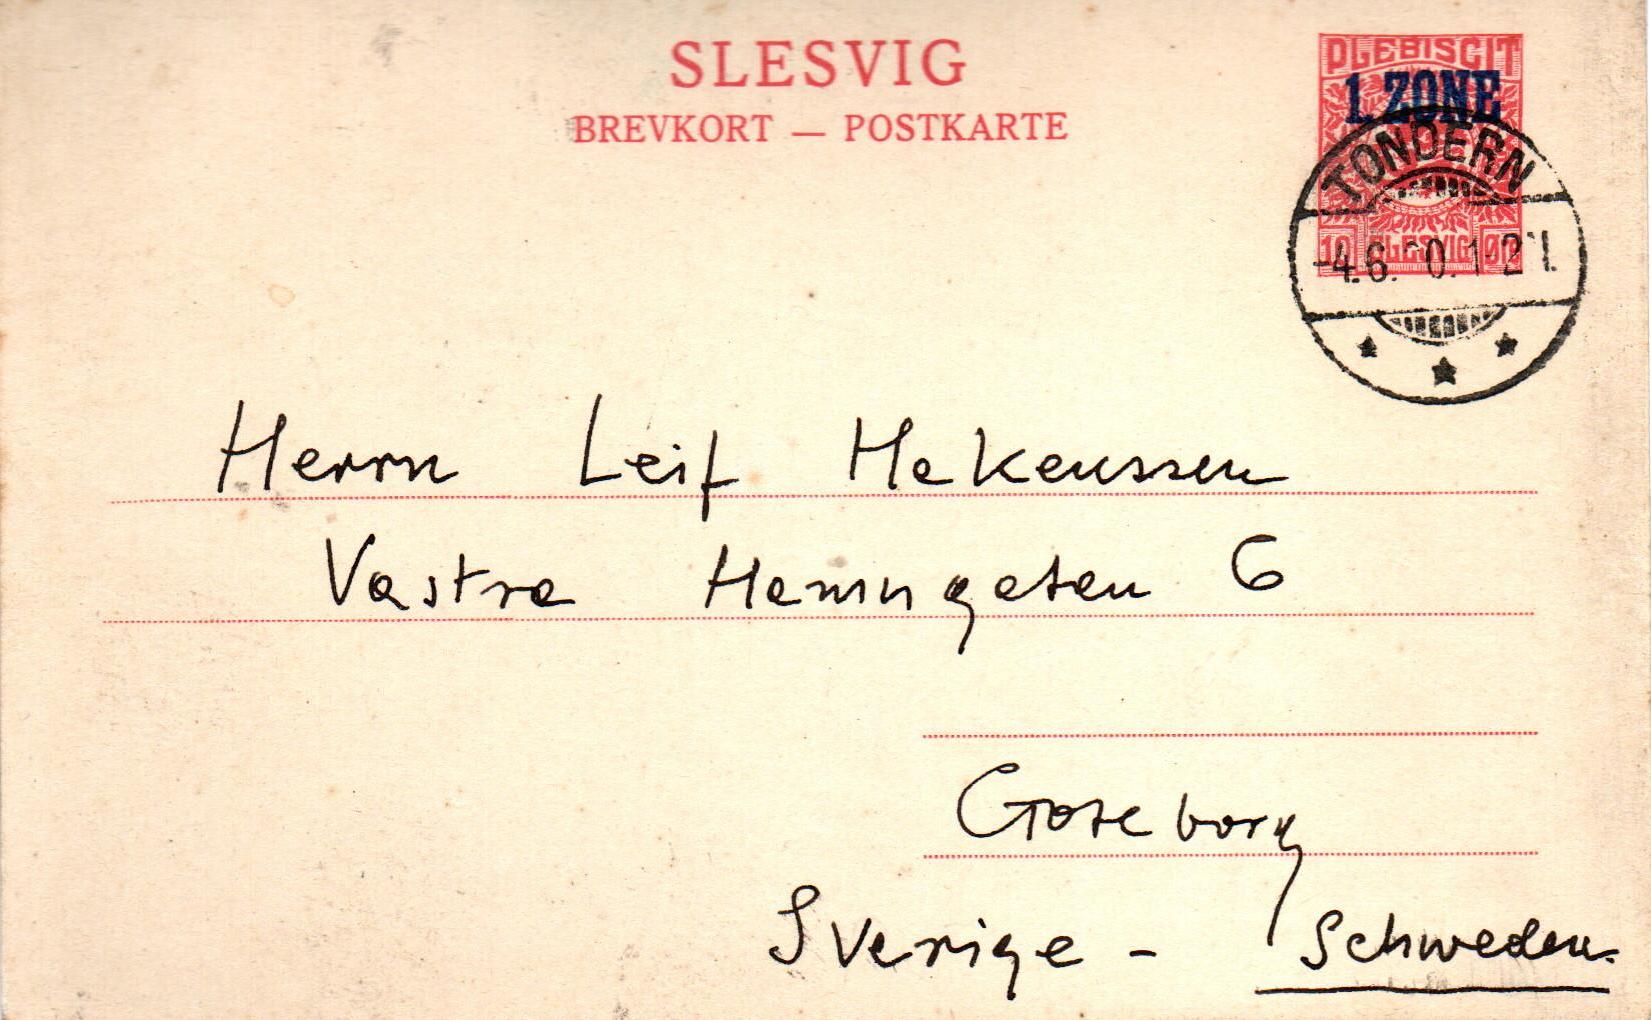 SLESVIG
BREVKORT — POSTKARTE
PLEBISCIT
1. ZONE
TONDERN
10 SLESVIG ØR
-4.6. 20. 1-2 N.
Herrn Leif Hakeussen
Vastra Hamngatan 6
Goteborg
Sverige - Schweden.